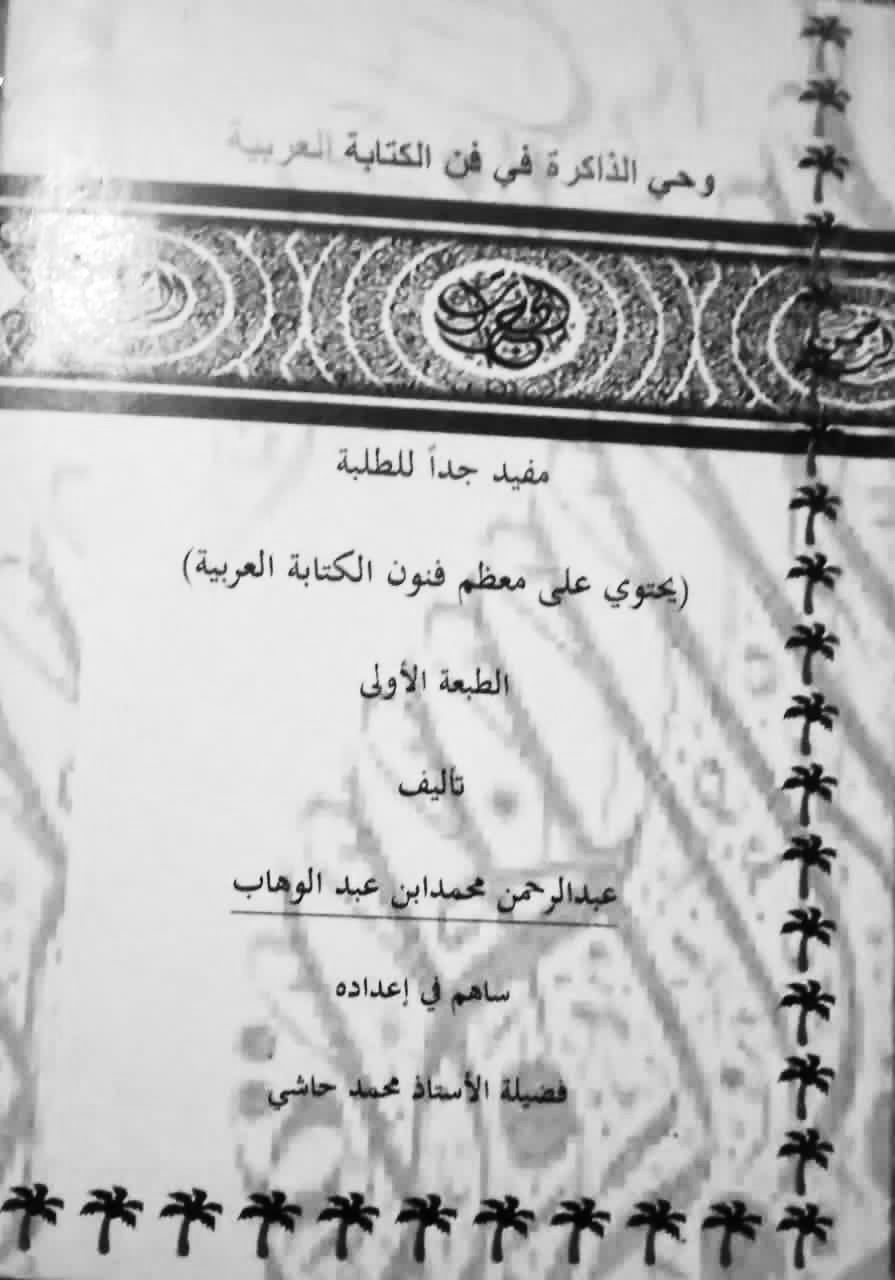 وحي الذاكرة في فن الكتابة العربية
مفيد جداً للطلبة
(يحتوي على معظم فنون الكتابة العربية)
الطبعة الأولى
تأليف
عبدالرحمن محمدابن عبد الوهاب
ساهم في إعداده
فضيلة الأستاذ محمد حاشي